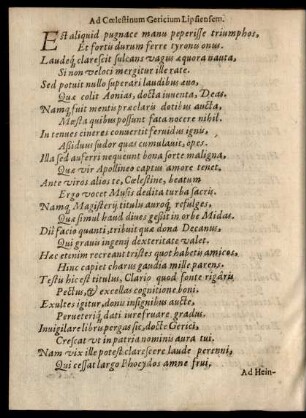 Ad Cœlestinum Gericium Lipsiensem.
Est aliquid pugnace manu peperisse triumphos,
Et forti durum ferre tyronis onus.
Laudeq; clarescit sulcans vagus æquora nauta,
Si non veloci mergitur ille rate.
Sed potuit nulli superari laudibus ævo,
Quæ colit Aonias, docta iuventa, Deas.
Namq; fuit mentis præclaris dotibus aucta,
Mœsta quibus possunt fata nocere nihil.
In tenues cineres convertit fervidus ignis,
Assiduus sudor quas cumulavit, opes.
Illa sed auferri nequeunt bona sorte maligna,
Quæ vir Apollineo captus amore tenet.
Ante viros alios te, Cœlestine, beatum
Ergo vocet Musis dedita turba sacris.
Namq; Magisterij titulu auroq; refulges,
Quæ simul haud dives gessit in orbe Midas.
Dij facio quanti, tribuit quæ dona Decanus,
Qui gravis ingenij dexteritate valet.
Hæc etenim recreant tristes quot habetis amicos,
Hinc capiet charus gaudia mille parens.
Testis hic est titulus, Clario quod fonte rigaris
Pectus, & excellas cognitione boni.
Exultes igitur, donis insignibus aucte,
Pervetériq; dati iure fruare gradus.
Invigilare libris pergas sic, docte Gerici,
Crescat ut in patria nominis aura tui,
Nam vix ille potest clarescere laude perenni,
Qui cessat largo Phocydos amne frui,
Ad Hein-